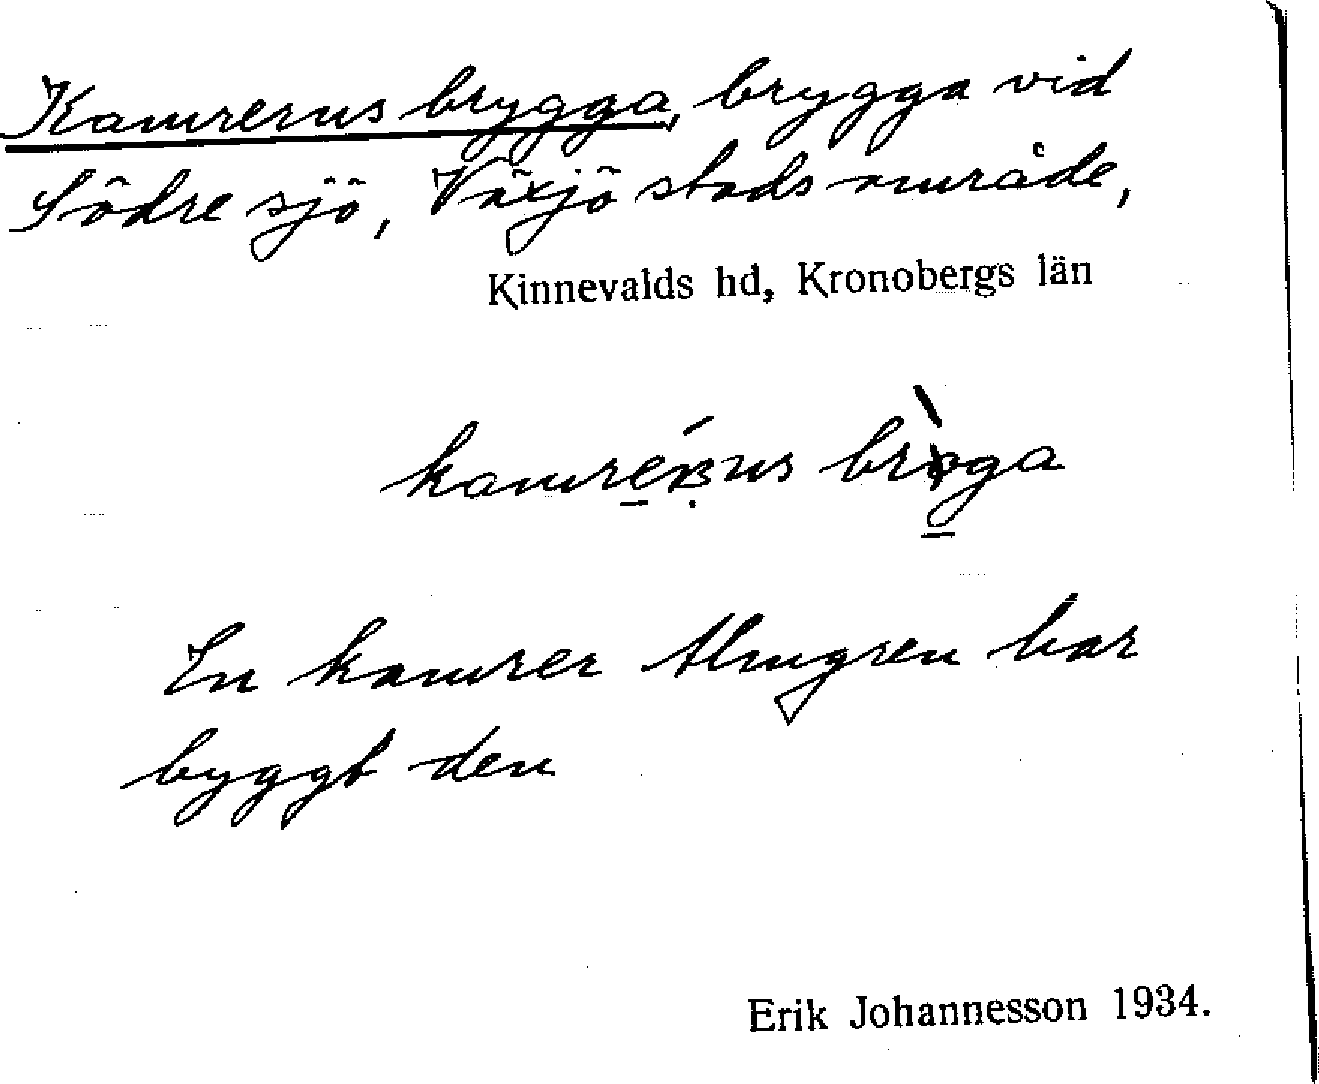 Kamrerns brygga, brygga vid
Södre sjö, Växjö stads område,
Kinnevalds hd, Kronobergs län
En kamrer Almgren har
byggt den
Erik Johannesson 1934.